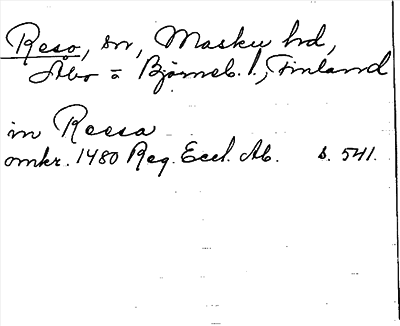 Reso, sn, Masku hd,
Åbo = Björneb. l., Finland
in Reesa
omkr. 1480 Reg. Eccl. Ab. s. 541.